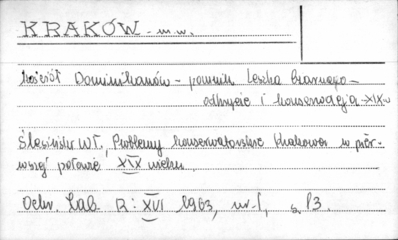 KRAKÓW - m.w.
Kościół Dominikanów - pomnik Leszka Czarnego -
odkrycie i konserwacja - XIX w
Ślesiński Wł., Problemy konserwatorskie Krakowa w pier-
wszej połowie XIX wieku.
Ochr. Zab. R: XVI 1963, nr. 1, s. 13.